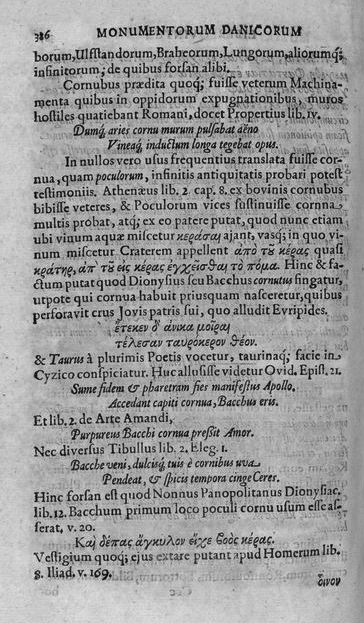 386 MONUMENTORUM DANICORUM
borum, Ulfslandorum, Brabeorum, Lungorum, aliorumq;
infinitorum; de quibus forsan alibi.
Cornubus prædita quoq; fuisse veterum Machina-
menta quibus in oppidorum expugnationibus, muros
hostiles quatiebant Romani, docet Propertius lib. iv.
Dumq; aries cornu murum pulsabat aëno
Vineaq; inductum longa tegebat opus.
In nullos vero usus frequentius translata fuisse cor-
nua, quam poculorum, infinitis antiquitatis probari potest
testimoniis. Athenæus lib. 2. cap. 8. ex bovinis cornubus
bibisse veteres, & Poculorum vices sustinuisse cornna
multis probat, atq; ex eo patere putat, quod nunc etiam
ubi vinum aquæ miscetur κεράσαι ajant, vasq; in quo vi-
num miscetur Craterem appellent ἀπὸ τȣ͂ κέρας quasi
κρατὴρ, ἀπ' τȣ͂ εἰς κέρας ἐγχεῖσθαι τὸ πόμα. Hinc & fa-
ctum putat quod Dionysius seu Bacchus cornutus fingatur,
utpote qui cornua habuit priusquam nasceretur, quibus
perforavit crus Jovis patris sui, quo alludit Evripides.
ἔτεκεν δ' ἁνίκα μοῖραι
τέλεσαν ταυρόκερον θέον.
& Taurus à plurimis Poetis vocetur, taurinaq; facie in
Cyzico conspiciatur. Huc allusisse videtur Ovid. Epist. 21.
Sume fidem & pharetram fies manifestus Apollo.
Accedant capiti cornua, Bacchus eris.
Et lib. 2. de Arte Amandi,
Purpureus Bacchi cornua pressit Amor.
Nec diversus Tibullus lib. 2. Eleg. 1.
Bacche veni, dulcisq; tuis è cornibus uva
Pendeat, & spicis tempora cinge Ceres.
Hinc forsan est quod Nonnus Panopolitanus Dionysiac.
lib. 12. Bacchum primum loco poculi cornu usum esse as-
serat, v. 20.
Καὶ δέπας ἀγκυλον εἶχε θοὸς κέρας.
Vestigium quoq; ejus extare putant apud Homerum lib.
8. Iliad. v. 169.
οἶνον